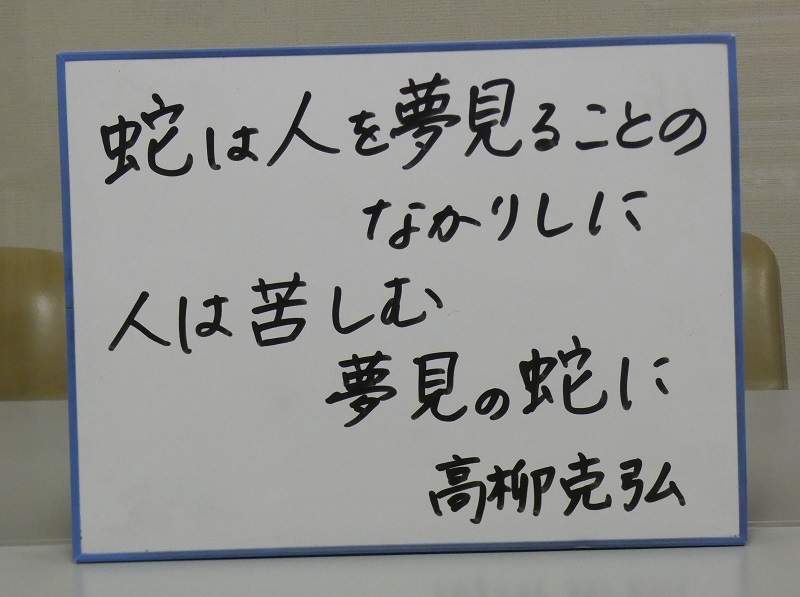 蛇は人を夢見ることの
なかりしに
人は苦しむ
夢見の蛇に
高柳克弘